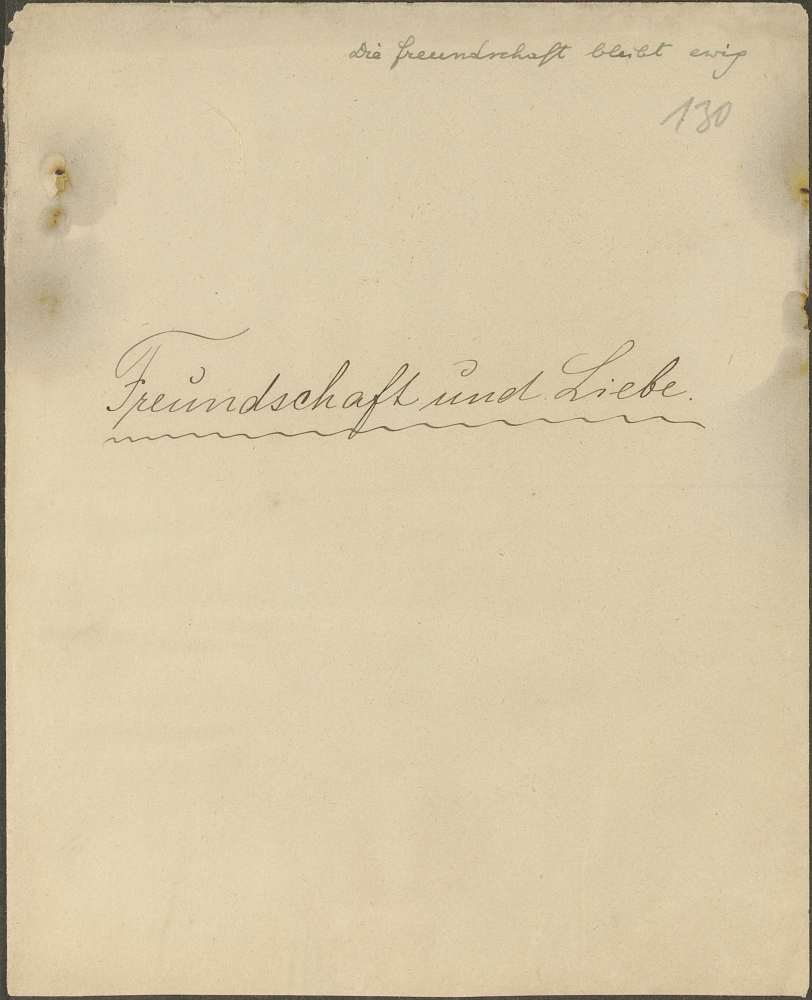 Die freundschaft bleibt ewig
130
Freundschaft und Liebe.